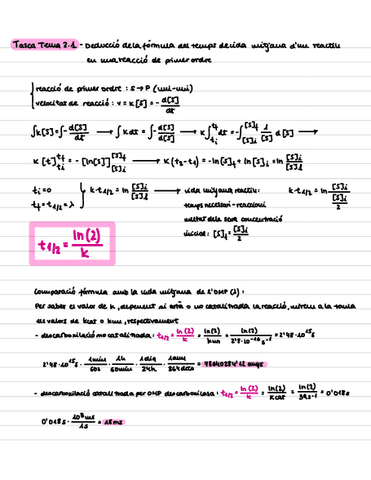 Tasca Tema 2.1 - Deducció de la fórmula del temps de vida mitjana d'un reactiu
en una reacció de primer ordre
reacció de primer ordre : S → P (uni-uni)
velocitat de reacció : v = k[S] = - d[S]/dt
∫k[S] = ∫- d[S]/dt → ∫k dt = ∫- d[S]/[S] → k∫_{ti}^{tf} dt = -∫_{[S]i}^{[S]f} 1/[S] d[S] →
k [t]_{ti}^{tf} = - [ln[S]]_{[S]i}^{[S]f} → k (tf-ti) = -ln[S]f + ln[S]i = ln [S]i/[S]f
ti = 0
tf = t1/2 = λ
k·t1/2 = ln [S]i/[S]f → vida mitjana reactiu:
temps necessari - reaccioni
meitat de la seva concentració
inicial: [S]f = [S]i/2
k·t1/2 = ln [S]i/([S]i/2)
t1/2 = ln(2)/k
Comparació fórmula amb la vida mitjana de l'OMP (λ):
Per saber el valor de k, depenent si està o no catalitzada la reacció, mirem a la taula
els valors de kcat o knon, respectivament
- descarboxilació no catalitzada: t1/2 = ln(2)/k = ln(2)/knon = ln(2)/2'8·10⁻¹⁶ s⁻¹ = 2'48·10¹⁵ s
2'48·10¹⁵ s · 1min/60s · 1h/60min · 1dia/24h · 1any/365dies = 78640284'12 anys
- descarboxilació catalitzada per OMP descarboxilasa: t1/2 = ln(2)/k = ln(2)/kcat = ln(2)/39s⁻¹ = 0'018s
0'018s · 10³ms/1s = 18ms